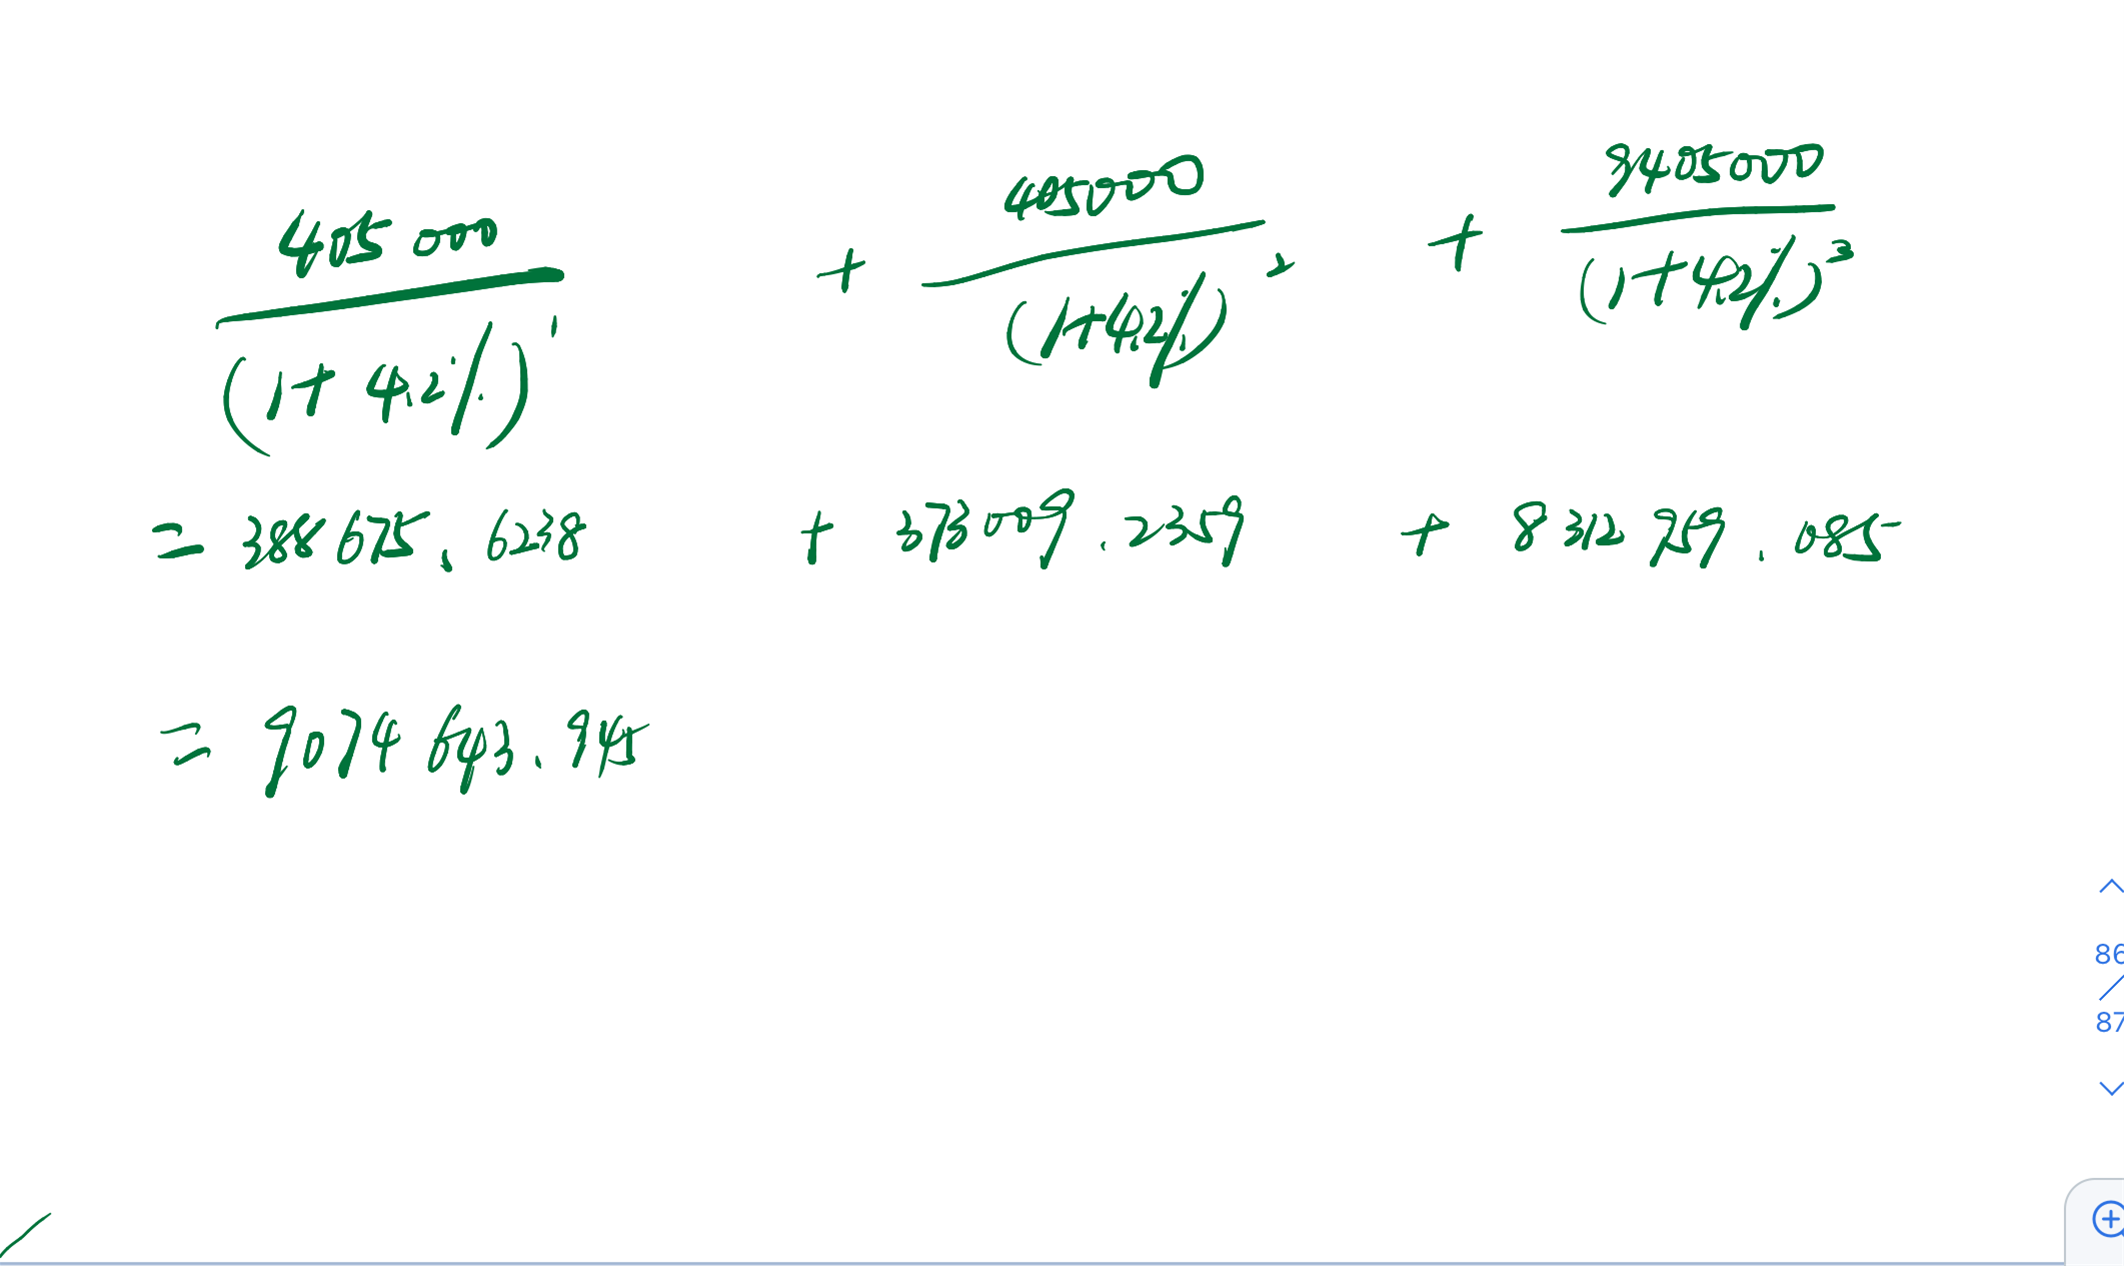 405000/(1+4.2%)¹ + 405000/(1+4.2%)² + 9405000/(1+4.2%)³
= 388675.6238 + 373009.2359 + 8312959.085
= 9074643.945
86
/
87